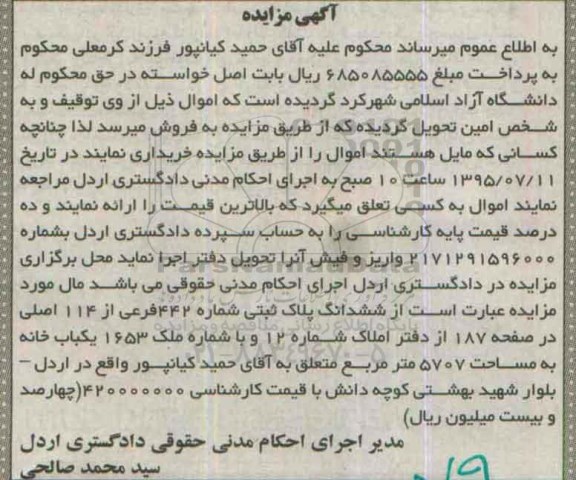 آگهی مزایده
به اطلاع عموم میرساند محکوم علیه آقای حمید کیانپور فرزند کرمعلی محکوم
به پرداخت مبلغ ۶۸۵۰۸۵۵۵۵ ریال بابت اصل خواسته در حق محکوم له
دانشگاه آزاد اسلامی شهرکرد گردیده است که اموال ذیل از وی توقیف و به
شخص امین تحویل گردیده که از طریق مزایده به فروش میرسد لذا چنانچه
کسانی که مایل هستند اموال را از طریق مزایده خریداری نمایند در تاریخ
۱۳۹۵/۰۷/۱۱ ساعت ۱۰ صبح به اجرای احکام مدنی دادگستری اردل مراجعه
نمایند اموال به کسی تعلق میگیرد که بالاترین قیمت را ارائه نمایند و ده
درصد قیمت پایه کارشناسی را به حساب سپرده دادگستری اردل بشماره
۲۱۷۱۲۹۱۵۹۶۰۰۰ واریز و فیش آنرا تحویل دفتر اجرا نماید محل برگزاری
مزایده در دادگستری اردل اجرای احکام مدنی حقوقی می باشد مال مورد
مزایده عبارت است از ششدانگ پلاک ثبتی شماره ۴۴۲فرعی از ۱۱۴ اصلی
در صفحه ۱۸۷ از دفتر املاک شماره ۱۲ و با شماره ملک ۱۶۵۳ یکباب خانه
به مساحت ۵۷۰۷ متر مربع متعلق به آقای حمید کیانپور واقع در اردل –
بلوار شهید بهشتی کوچه دانش با قیمت کارشناسی ۴۲۰۰۰۰۰۰۰(چهارصد
و بیست میلیون ریال)
مدیر اجرای احکام مدنی حقوقی دادگستری اردل
سید محمد صالحی